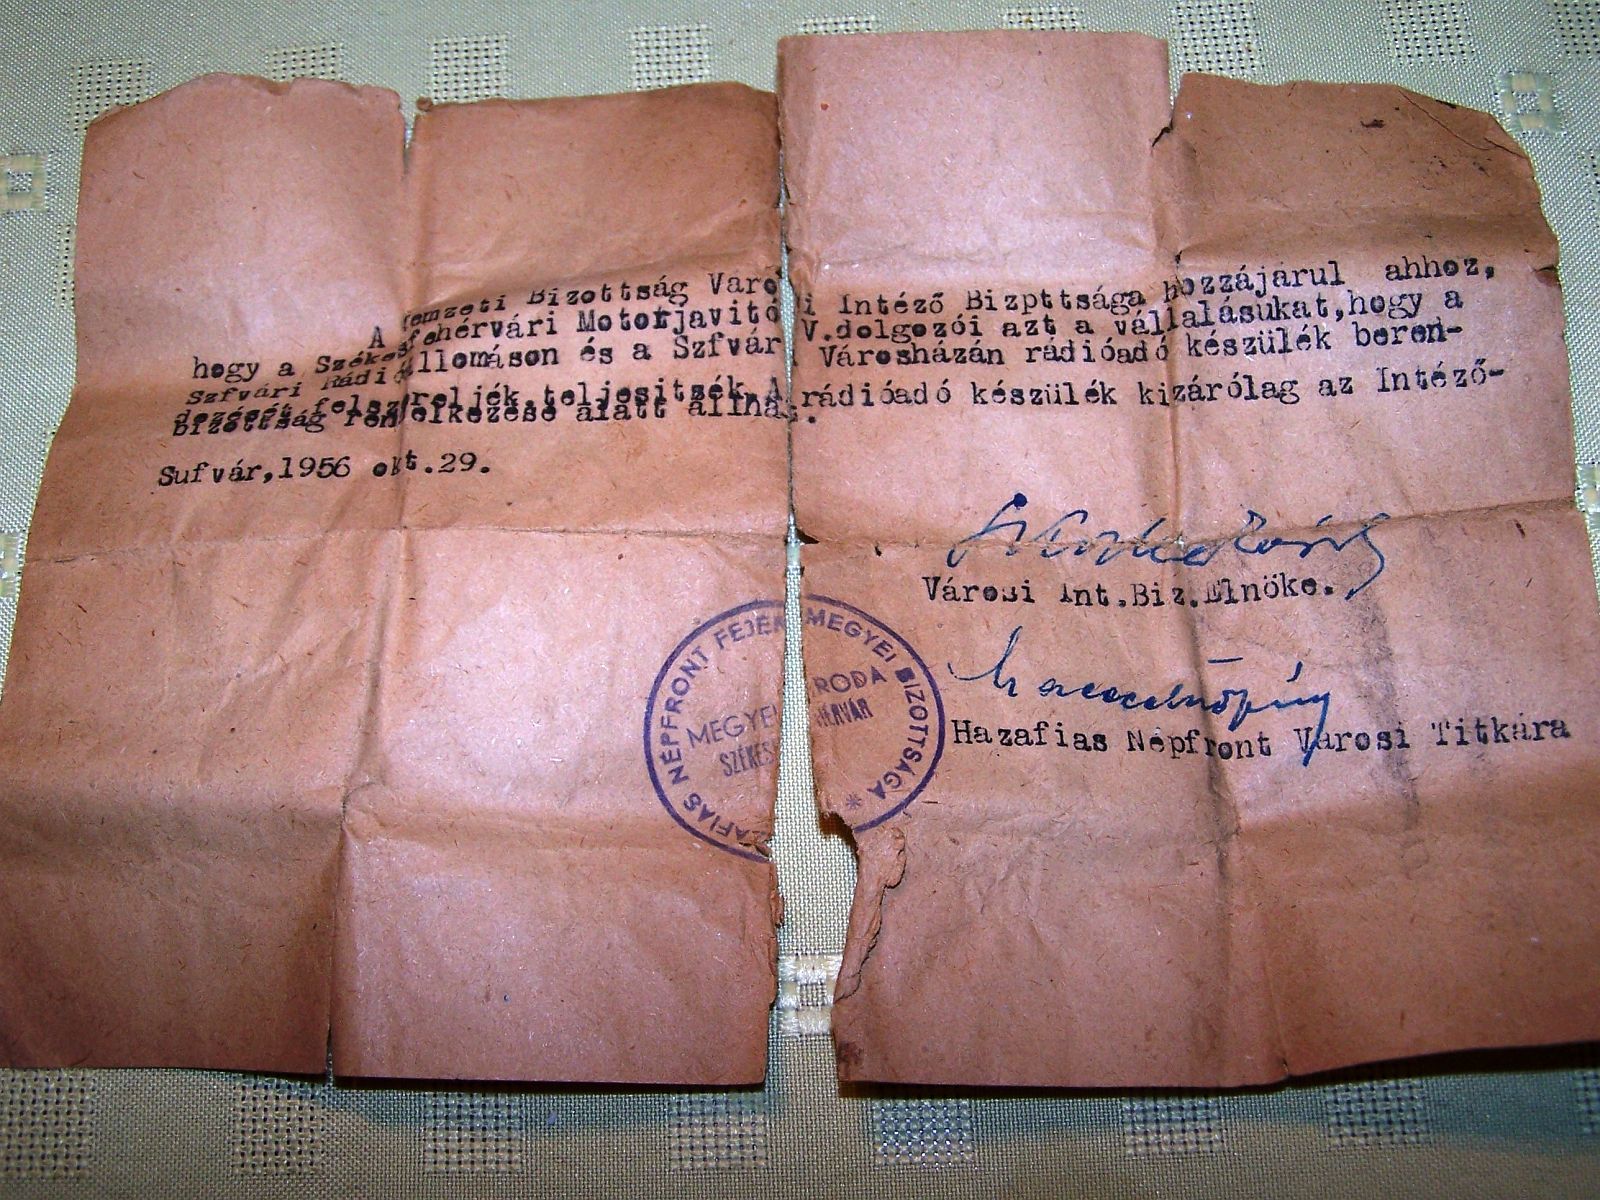 A Nemzeti Bizottság Váro i Intéző Bizpttsága hozzájarul ahhoz,
hogy a Székesfehérvári Motorjavitó V.dolgozói azt a vállalásukat,hogy a
Szfvári Rádióállomáson és a Szfvár Városházán rádióadó készülék beren-
dezését felszereljék teljesitsék.A rádióadó készülék kizárólag az Intéző-
Bizottság rendelkezése alatt állhat.
Sufvár,1956 okt.29.
Városi Int.Biz.Elnöke.
HAZAFIAS NÉPFRONT FEJÉR MEGYEI BIZOTTSÁGA *
MEGYEI RODA
SZÉKES HÉRVÁR
Hazafias Népfront Városi Titkára